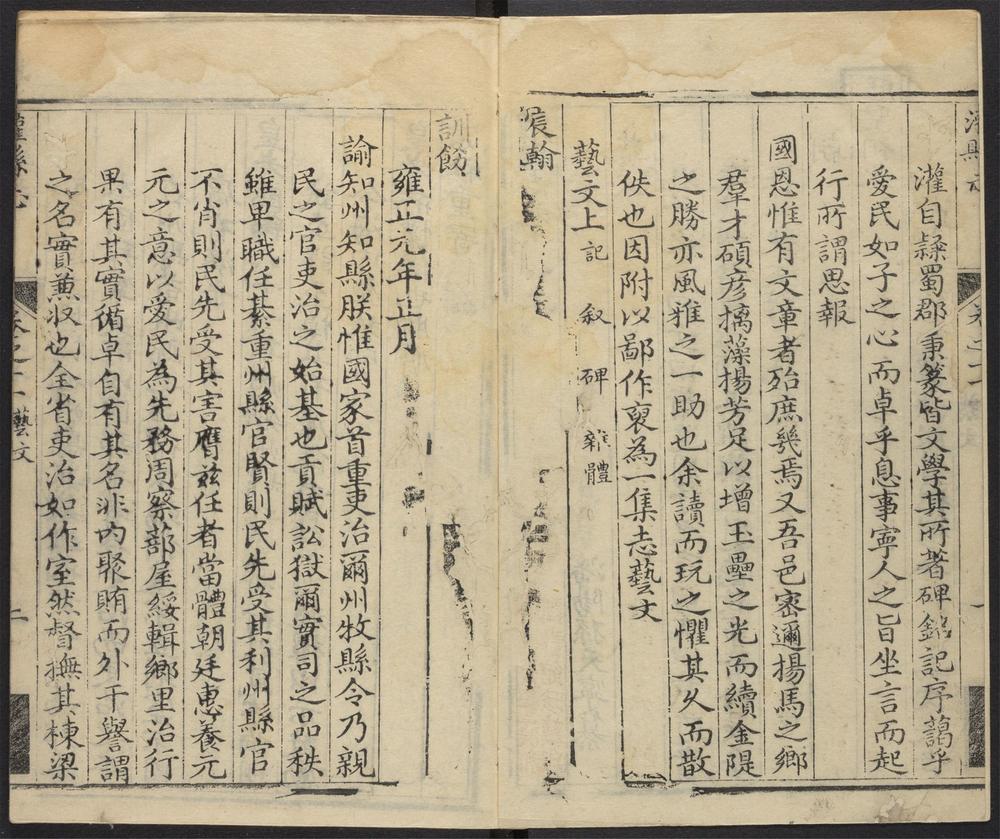 灌自隸蜀郡秉篆皆文學其所著碑銘記序藹乎
愛民如子之心而卓乎息事寧人之旨坐言而起
行所謂思報
國恩惟有文章者殆庶幾焉又吾邑密邇揚馬之鄉
羣才碩彥摛藻揚芳足以增玉壘之光而續金隄
之勝亦風雅之一助也余讀而玩之懼其久而散
佚也因附以鄙作裒為一集志藝文
藝文上 記 叙 碑 雜體
宸翰
訓飭
雍正元年正月
諭知州知縣朕惟國家首重吏治爾州牧縣令乃親
民之官吏治之始基也貢賦訟獄爾實司之品秩
雖卑職任綦重州縣官賢則民先受其利州縣官
不肖則民先受其害膺茲任者當體朝廷惠養元
元之意以愛民為先務周察蔀屋綏輯鄉里治行
果有其實循卓自有其名非內聚賄而外干譽謂
之名實兼收也全省吏治如作室然督撫其棟梁
灌縣志 卷之十一 藝文 二